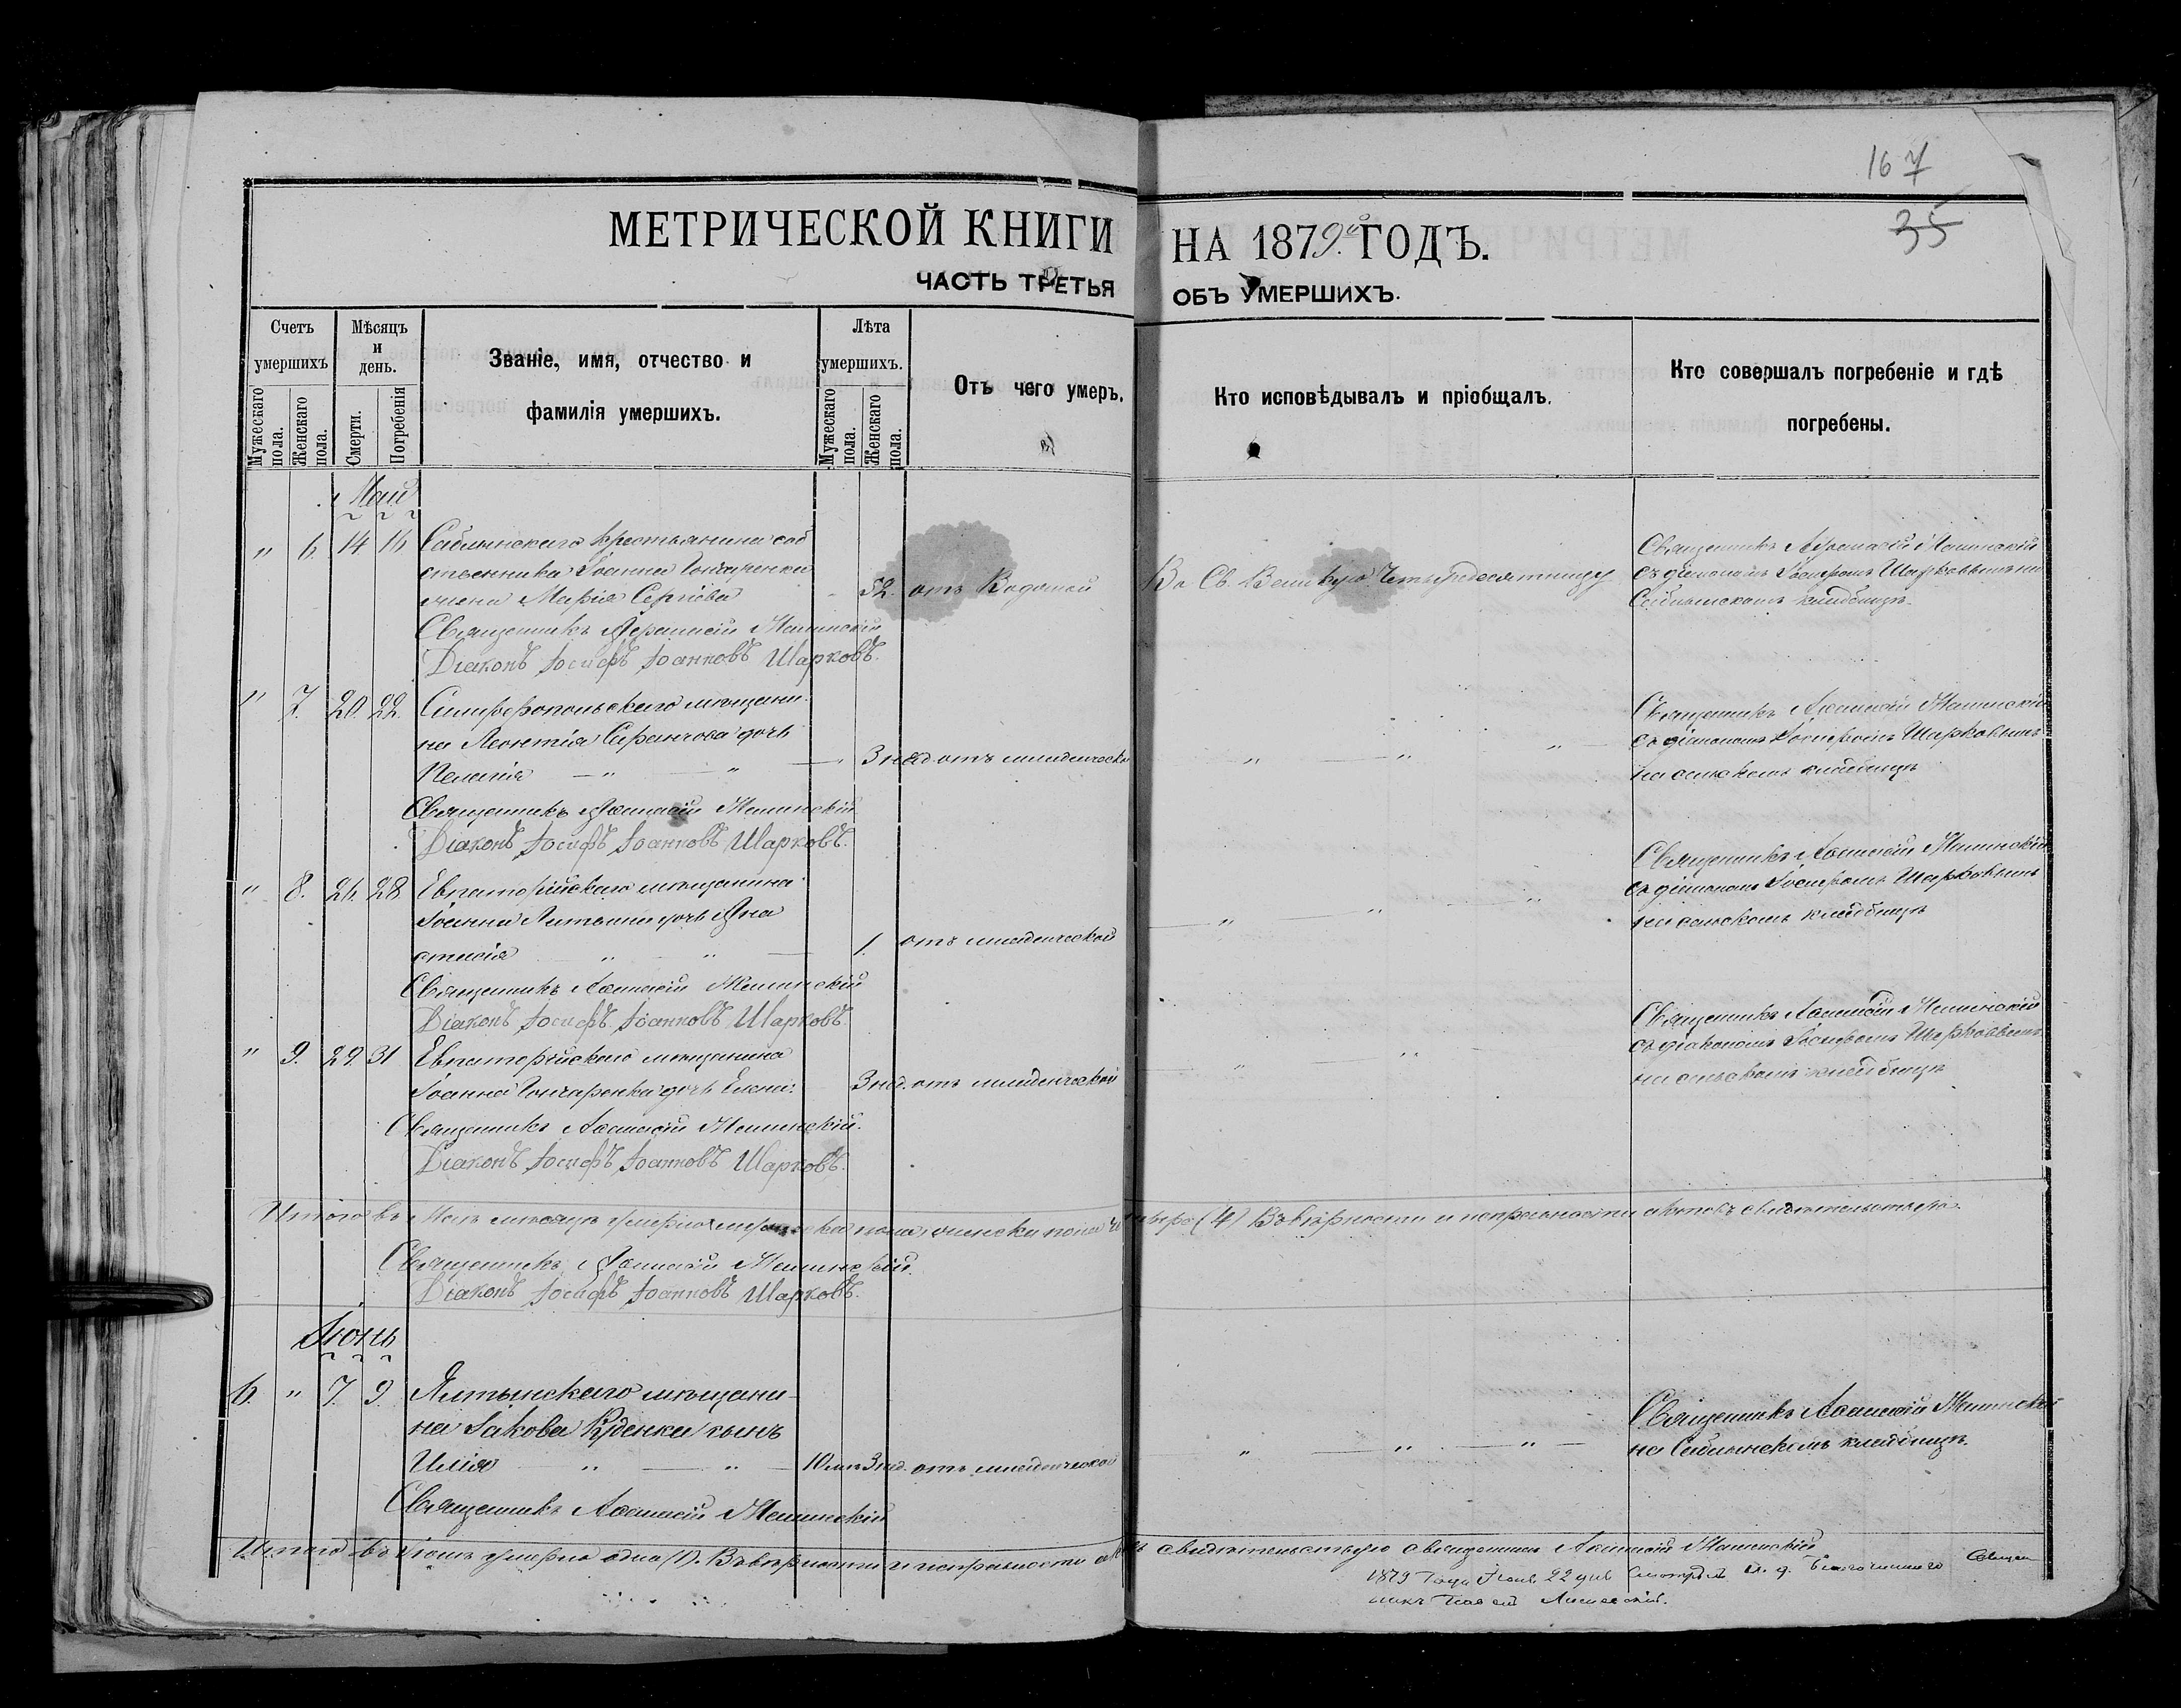 167
35
МЕТРИЧЕСКОЙ КНИГИ НА 1879й ГОДЪ.
ЧАСТЬ ТРЕТЬЯ ОБЪ УМЕРШИХЪ.
Счетъ умершихъ
Мужескаго пола.
Женскаго пола.
Мѣсяцъ и день.
Смерти.
Погребенія
Званіе, имя, отчество и
фамилія умершихъ.
Лѣта умершихъ.
Мужескаго пола.
Женскаго пола.
Отъ чего умеръ.
Кто исповѣдывалъ и пріобщалъ.
Кто совершалъ погребеніе и гдѣ
погребены.
Май
" 6. 14 16 Саблынскаго крестьянина соб
ственника Іоанна Гончаренка
жена Марія Сергіева 52. отъ Водяной
Во Св. Великую Четыредесятницу
Священникъ
съ діакономъ Іосифомъ Шарковымъ на
Саблынскомъ кладбищѣ.
Священникъ
Діаконъ Іосифъ Іоанновъ Шарковъ.
" 7. 20. 22. Симферопольскаго мѣщани-
на Леонтія дочь
Пелагія — " — " — 3 нед. отъ младенческ
" — " — " —
Священникъ Аѳанасій
съ діакономъ Іосифомъ Шарковымъ
на сельскомъ кладбищѣ
Священникъ Аѳанасій
Діаконъ Іосифъ Іоанновъ Шарковъ.
" 8. 26. 28 Евпаторійскаго мѣщанина
Іоанна дочь Ана
стасія — " — " — 1. отъ младенческой
— " — " — "
Священникъ Аѳанасій
съ діакономъ Іосифомъ Шарковымъ
на сельскомъ кладбищѣ
Священникъ Аѳанасій
Діаконъ Іосифъ Іоанновъ Шарковъ.
" 9. 29. 31 Евпаторійскаго мѣщанина
Іоанна Гончаренка дочь Елена. 3 нед. отъ младенческой
— " — "
Священникъ Аѳанасій
съ діакономъ Іосифомъ Шарковымъ
на сельскомъ кладбищѣ
Священникъ Аѳанасій
Діаконъ Іосифъ Іоанновъ Шарковъ.
Итого въ Маѣ мѣсяцѣ умерло женска пола четыре (4) Въ вѣрности и исправности актовъ свидѣтельствую
Священникъ Аѳанасій
Діаконъ Іосифъ Іоанновъ Шарковъ.
Іюнь
6. " 7. 9. Ялтынскаго мѣщани-
на Іакова Куденка сынъ
Илія — " — " — 10 мѣс. 3 нед. отъ младенческой
" — " — " —
Священникъ Аѳанасій
на Саблынскомъ кладбищѣ.
Священникъ Аѳанасій
Итого въ Іюнѣ умерло одно (1). Въ вѣрности и исправности актовъ свидѣтельствую священникъ Аѳанасій
1879 Года Іюня 22 дня Смотрѣлъ и. д. Благочиннаго Священ
никъ